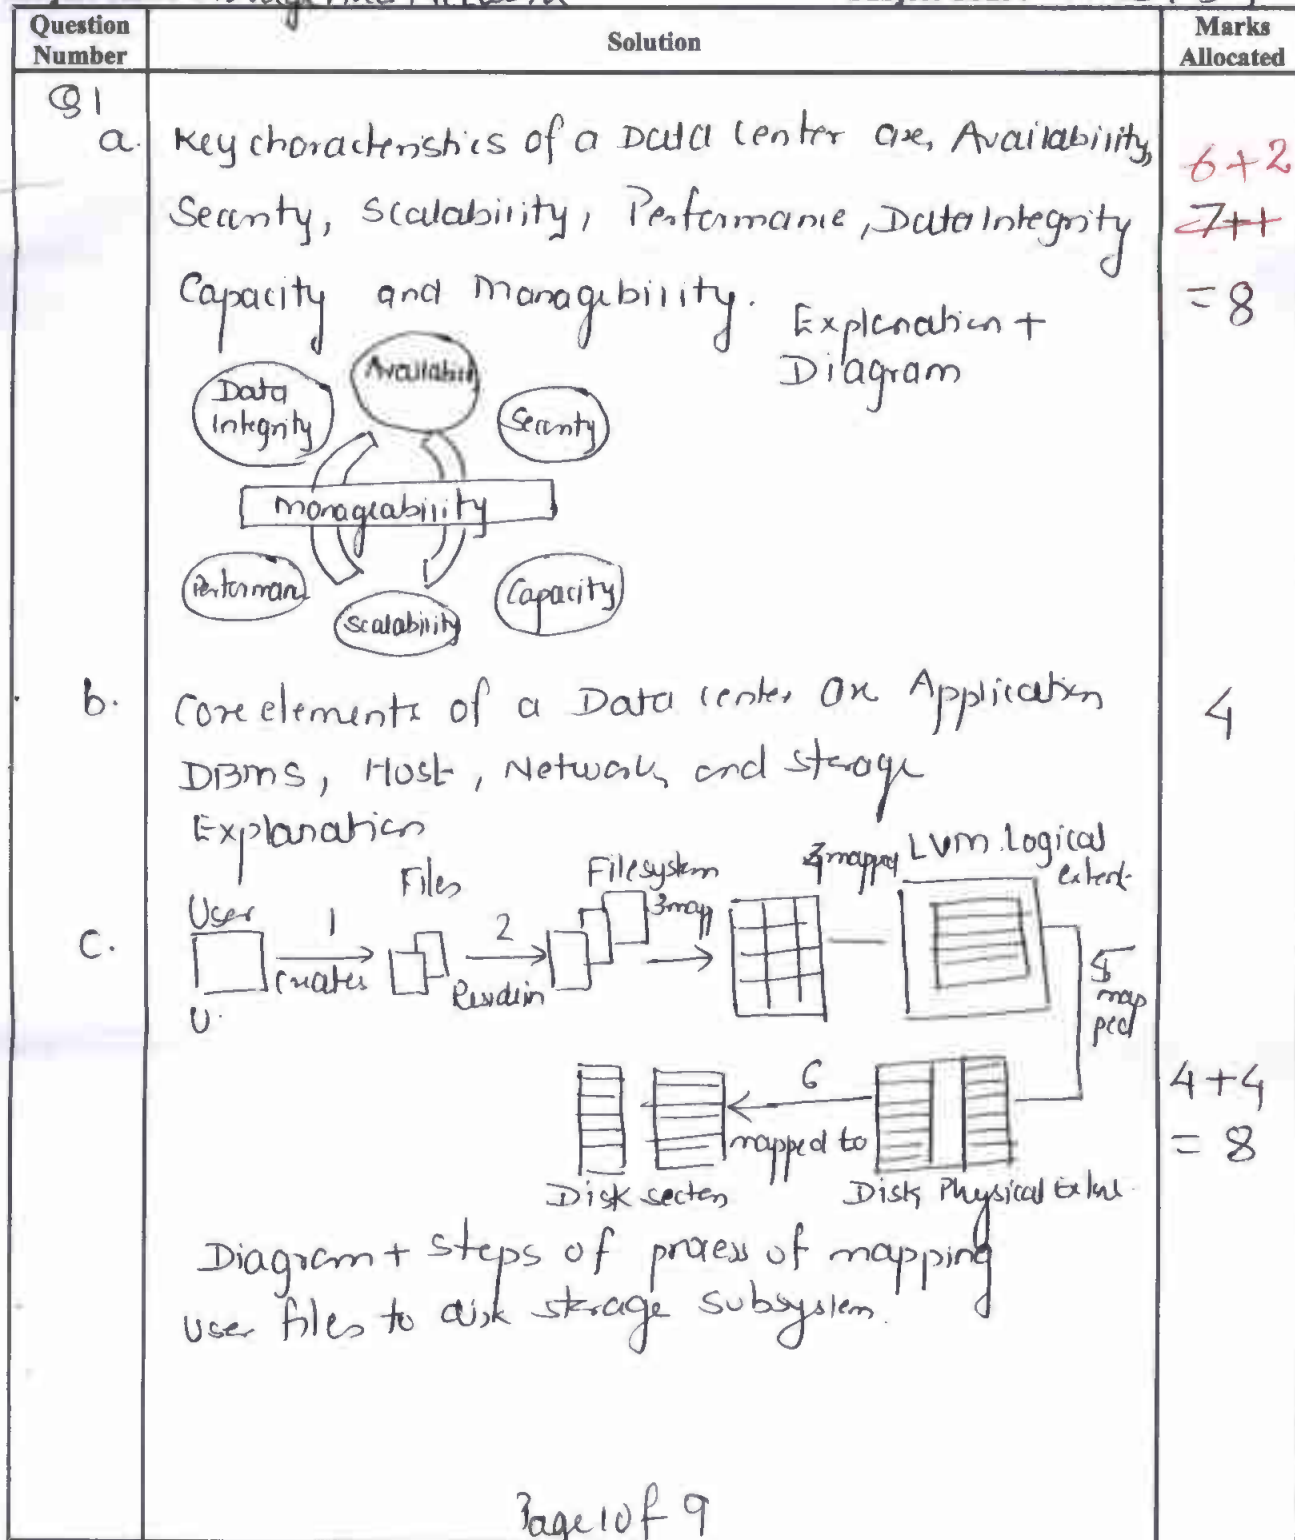 Question Number
Solution
Marks Allocated
Q1
a. Key characteristics of a Data Center are, Availability,
Security, Scalability, Performance, Data Integrity
Capacity and Managibility.
Explanation +
Diagram
6+2
7++
= 8
Data Integrity
Availabi
Security
Manageability
Performan
Scalability
Capacity
b. Core elements of a Data Center are Application
DBMS, Host, Network, and storage
Explanation
4
c.
User
U.
1
creates
Files
2
Reside in
Filesystem
3 map
4 mapped
LVM Logical extent
5 mapped
6
mapped to
Disk Physical
Disk
4+4
= 8
Diagram + steps of process of mapping
user files to disk storage subsystem.
Page 1 of 9